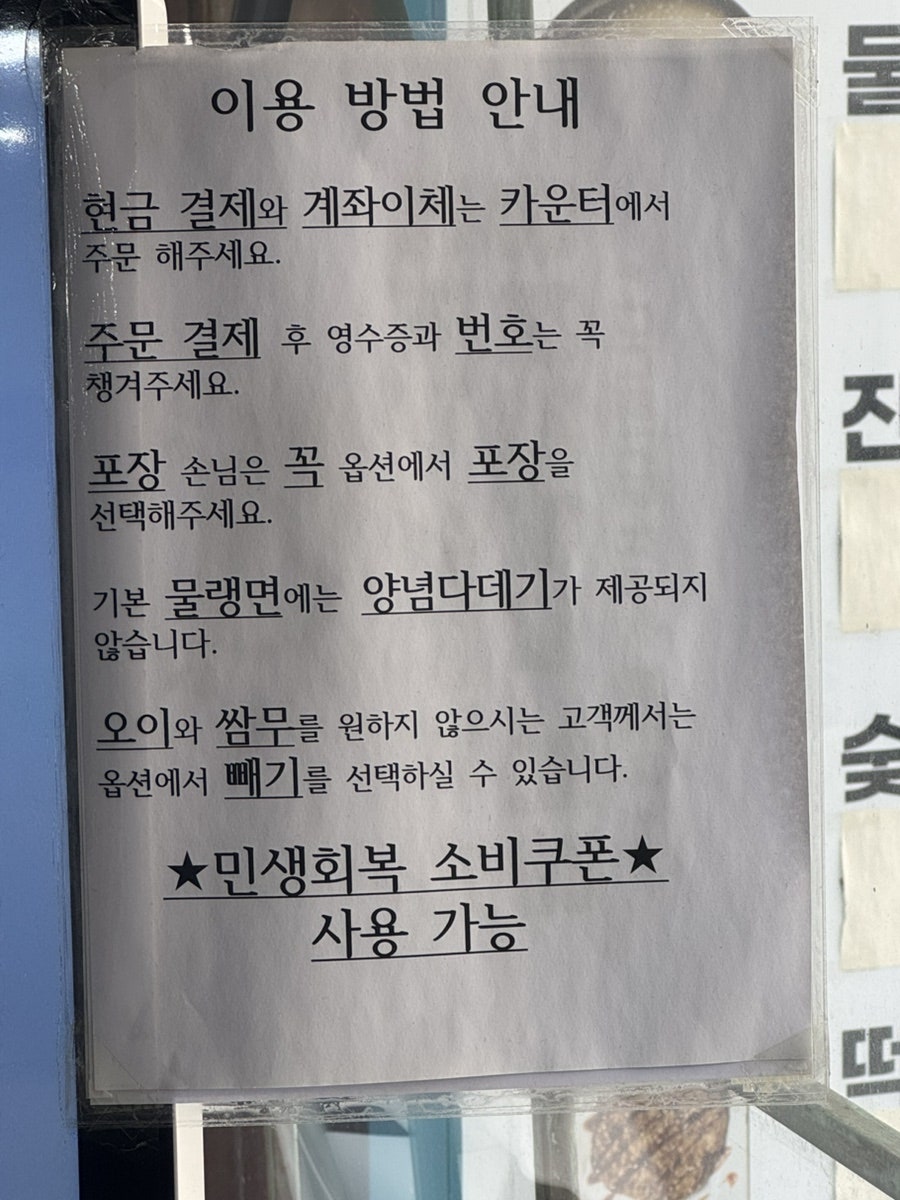 이용 방법 안내
현금 결제와 계좌이체는 카운터에서
주문 해주세요.
주문 결제 후 영수증과 번호는 꼭
챙겨주세요.
포장 손님은 꼭 옵션에서 포장을
선택해주세요.
기본 물랭면에는 양념다데기가 제공되지
않습니다.
오이와 쌈무를 원하지 않으시는 고객께서는
옵션에서 빼기를 선택하실 수 있습니다.
★민생회복 소비쿠폰★
사용 가능